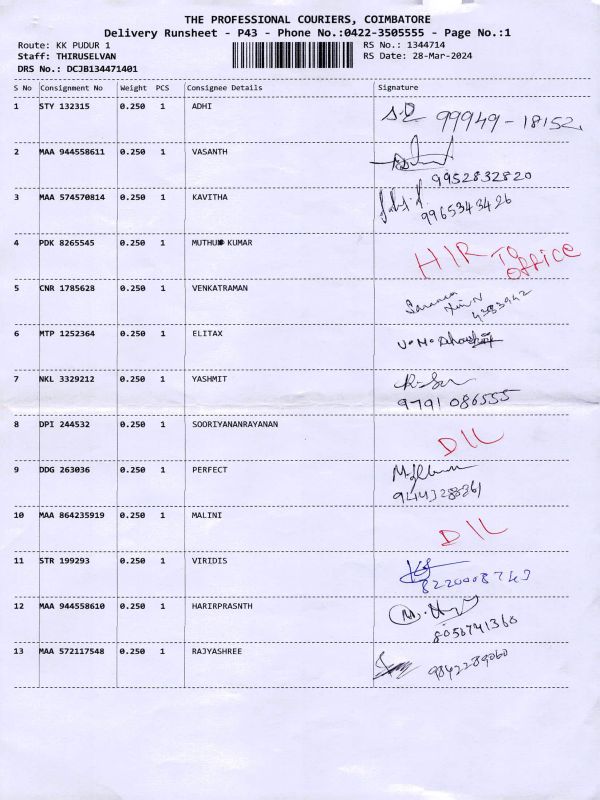 THE PROFESSIONAL COURIERS, COIMBATORE
Delivery Runsheet - P43 - Phone No.:0422-3505555 - Page No.:1
Route: KK PUDUR 1
Staff: THIRUSELVAN
DRS No.: DCJB134471401
RS No.: 1344714
RS Date: 28-Mar-2024
S No Consignment No Weight PCS Consignee Details Signature
1 STY 132315 0.250 1 ADHI 99949-18152
2 MAA 944558611 0.250 1 VASANTH
9952832820
3 MAA 574570814 0.250 1 KAVITHA
9965343426
4 PDK 8265545 0.250 1 MUTHU KUMAR HIR TO
OFFICE
5 CNR 1785628 0.250 1 VENKATRAMAN
6 MTP 1252364 0.250 1 ELITAX
7 NKL 3329212 0.250 1 YASHMIT
9791 086555
8 DPI 244532 0.250 1 SOORIYANANRAYANAN
D/L
9 DDG 263036 0.250 1 PERFECT
10 MAA 864235919 0.250 1 MALINI
D/L
11 STR 199293 0.250 1 VIRIDIS
12 MAA 944558610 0.250 1 HARIRPRASNTH
8056741360
13 MAA 572117548 0.250 1 RAJYASHREE 9842289060